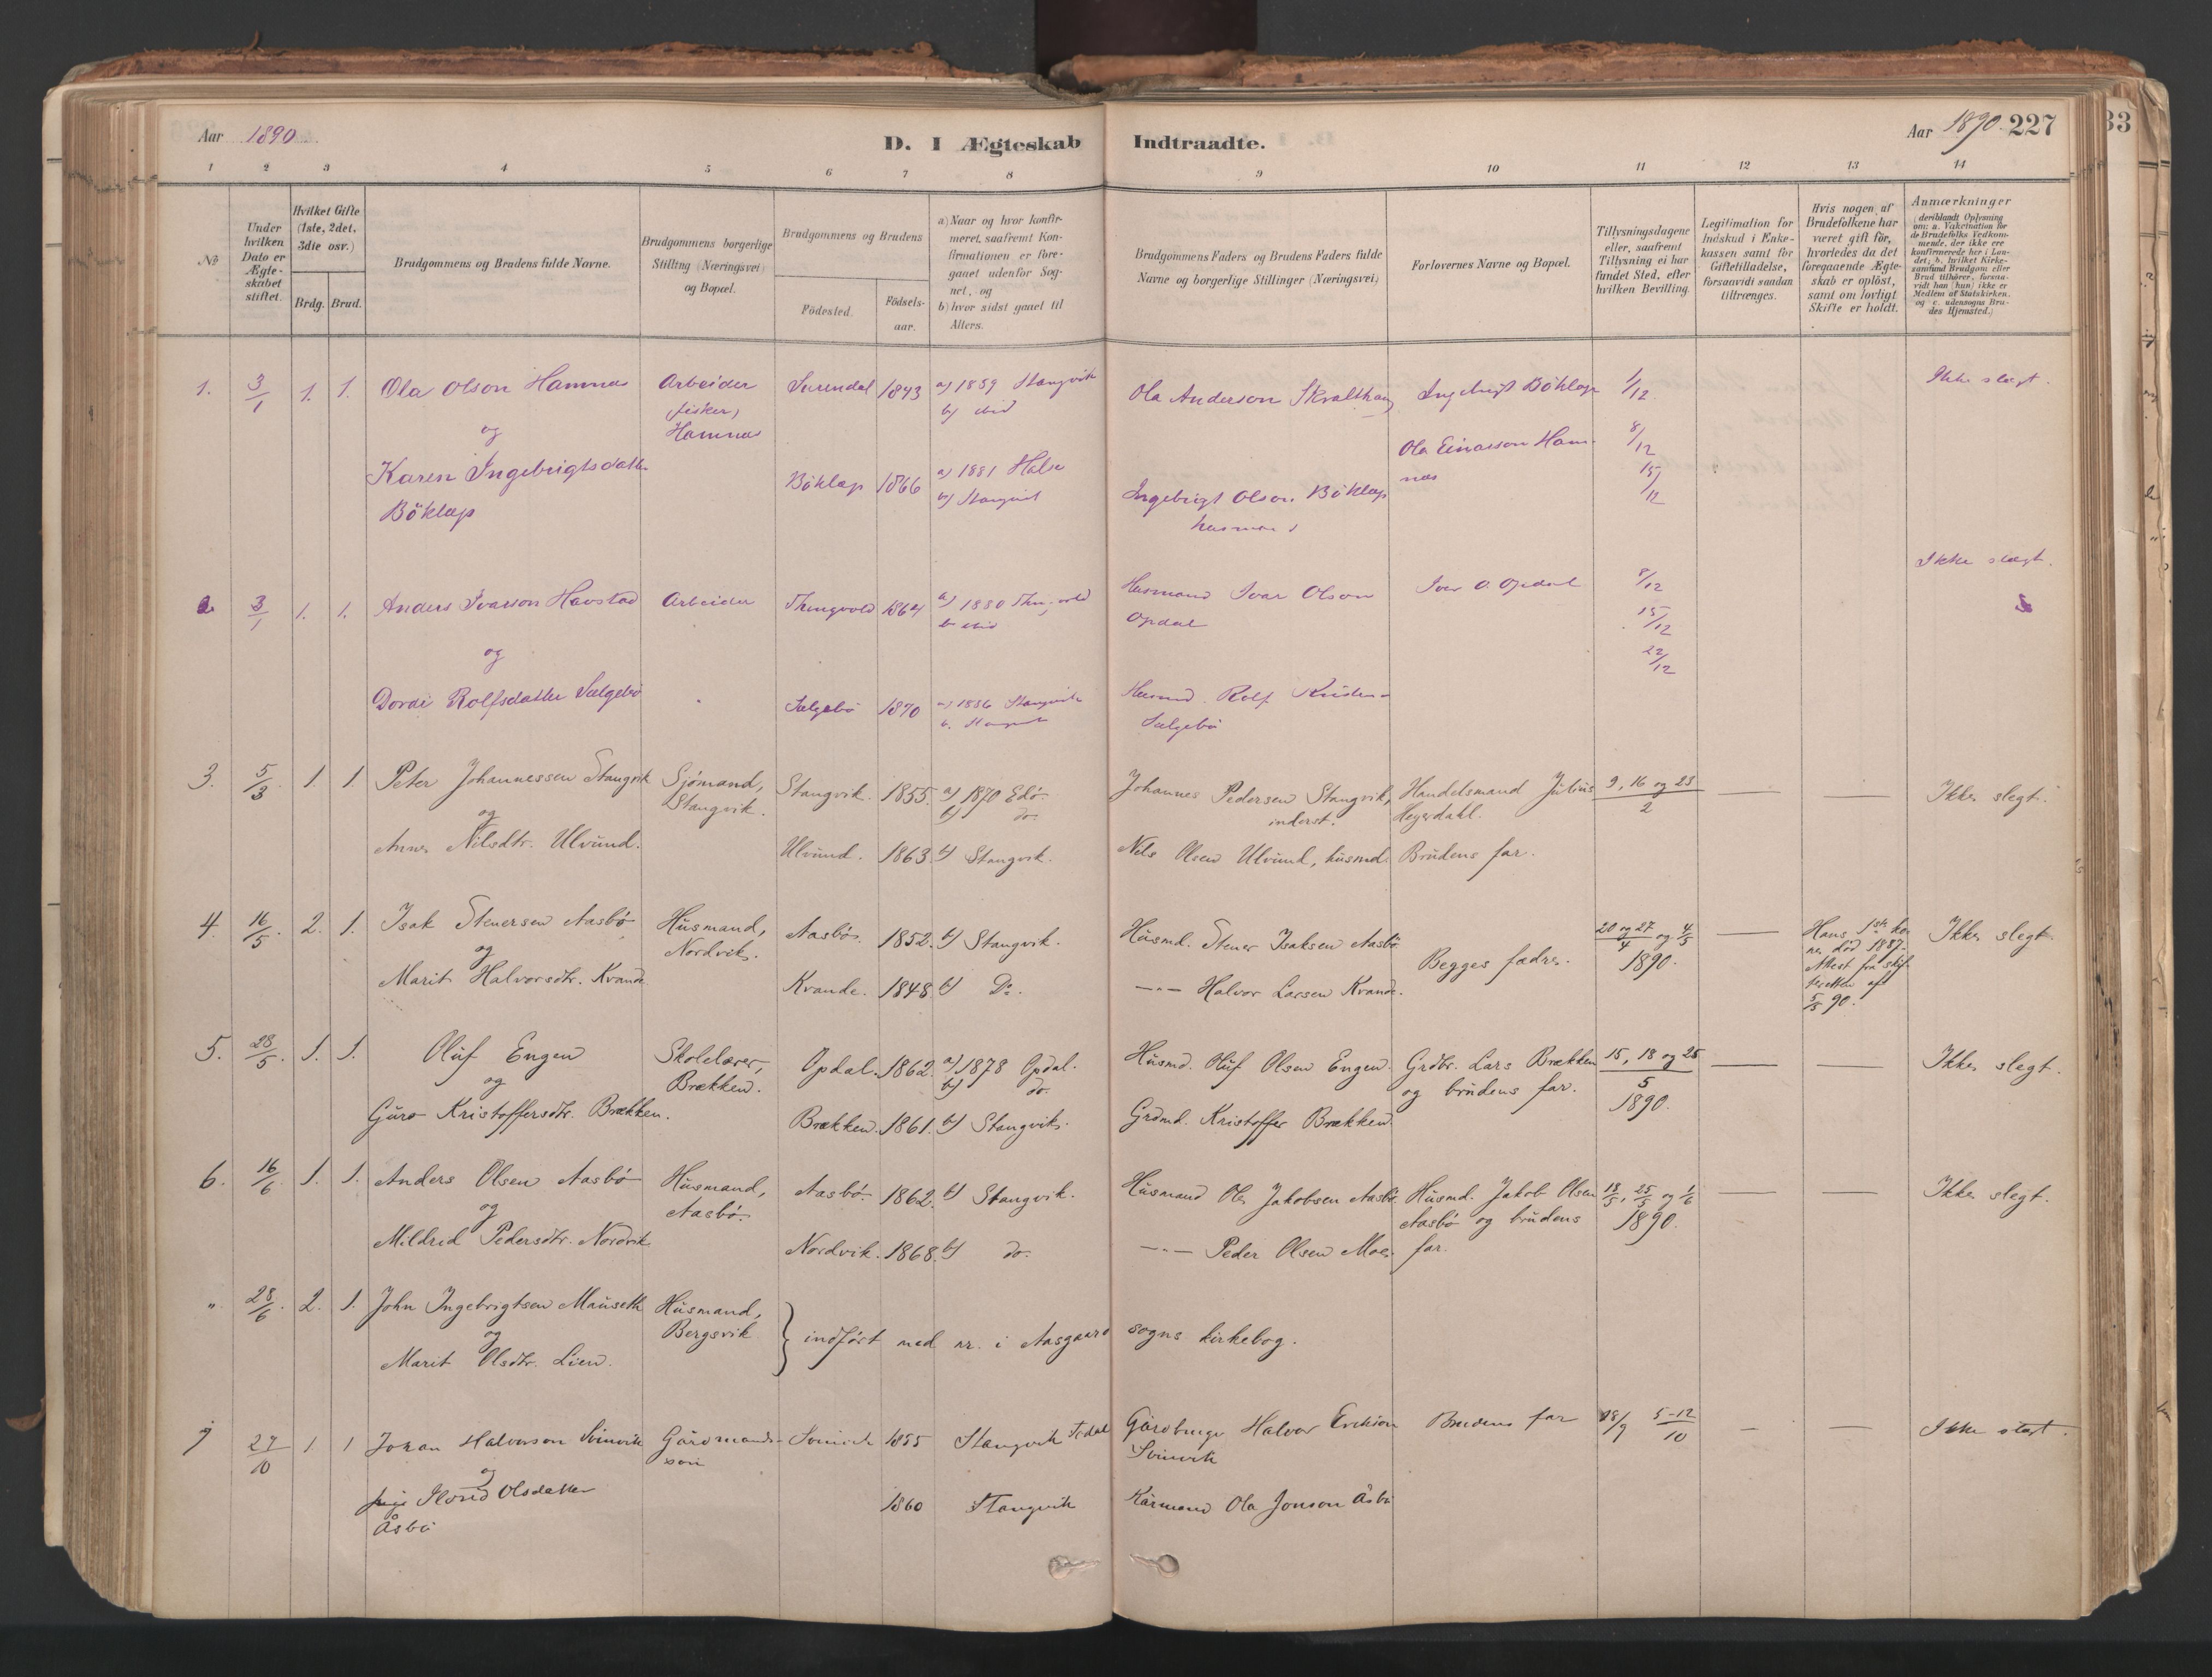 Aar 1890.
D. I Ægteskab Indtraadte.
Aar 1890. 227
33
1 2 3 4 5 6 7 8 9 10 11 12 13 14
No
Under hvilken Dato er Ægteskabet stiftet.
Hvilket Gifte (1ste, 2det, 3die osv.)
Brdg. Brud.
Brudgommens og Brudens fulde Navne.
Brudgommens borgerlige Stilling (Næringsvei) og Bopæl.
Brudgommens og Brudens
Födested. Födselsaar.
a) Naar og hvor konfirmeret, saafremt Konfirmationen er foregaaet udenfor Sognet, og
b) hvor sidst gaaet til Alters.
Brudgommens Faders og Brudens Faders fulde Navne og borgerlige Stillinger (Næringsvei)
Forlovernes Navne og Bopæl.
Tillysningsdagene eller, saafremt Tillysning ei har fundet Sted, efter hvilken Bevilling.
Legitimation for Indskud i Enkekassen samt for Giftetilladelse, forsaavidt saadan tiltrænges.
Hvis nogen af Brudefolkene har været gift för, hvorledes da det foregaaende Ægteskab er oplöst, samt om lovligt Skifte er holdt.
Anmærkninger
(deriblandt Oplysning om: a. Vakcination for de Brudefolks Vedkommende, der ikke ere konfirmerede her i Landet; b. hvilket Kirkesamfund Brudgom eller Brud tilhörer, forsaavidt han (hun) ikke er Medlem af Statskirken, og c. udensogns Brudes Hjemsted.)
1. 3/1 1. 1. Ola Olson Hamnas Arbeider Surendal 1843 a) 1859 Stangvik Ola Anderson Skralthaug Ingebrigt Böklep 1/12 Ikke slægt.
fisker, b) ibid
og Hamnas Ola Einarson Ham- 8/12
Karen Ingebrigtsdatter Böklep 1866 a) 1881 Halse nas 15/12
Böklep b) Stangvik Ingebrigt Olson Böklep
husmand
2 3/1 1. 1. Anders Ivarson Havstad Arbeider Thingvold 1864 a) 1880 Thingvold Husmand Ivar Olson Iver O. Opdal 8/12 Ikke slægt.
b ibid Opdal 15/12
og 22/12
Dordi Rolfsdatter Sælgebö Sælgebö 1870 a) 1886 Stangvik Husmd. Rolf
b. Stangvik Sælgebö
3. 5/3. 1. 1. Peter Johannessen Stangvik Sjömand, Stangvik. 1855. a) 1870 Edö. Johannes Pedersen Stangvik, Handelsmand Julius 9, 16 og 23 Ikke slegt.
og Stangvik. b) do. inderst. Heyerdahl. 2
Anne Nilsdtr. Ulvund. Ulvund. 1863. b) Stangvik. Nels Olsen Ulvund, husmd. Brudens far.
4. 16/5. 2. 1. Isak Stenersen Aasbö Husmand, Aasbö. 1852. b) Stangvik. Husmd. Stener Isaksen Aasbö 20 og 27/4 og 4/5 Hans 1ste ko- Ikke slegt.
og Nordvik. Begges fædre. 1890. ne död 1887.
Marit Halvorsdtr. Kvande Kvande. 1848. b) Do. —"— Halvor Larsen Kvande. Attest fra skif-
teretten af
5/5 90.
5. 28/5. 1. 1. Oluf Engen Skolelærer, Opdal. 1862. a) 1878 Opdal. Husmd. Oluf Olsen Engen. Grdbr. Lars Brækken 15, 18 og 25 Ikke slegt.
og Brækken. b) do. og brudens far. 5
Guro Kristoffersdtr. Brækken. Brækken. 1861. b) Stangvik. Grdmd. Kristoffer Brækken. 1890.
6. 16/6. 1. 1. Anders Olsen Aasbö Husmand, Aasbö. 1862. b) Stangvik. Husmand Ole Jakobsen Aasbö Husmd. Jakob Olsen 18/5, 25/5 og 1/6 Ikke slegt.
og Aasbö. Aasbö og brudens 1890.
Mildrid Pedersdtr. Nordvik Nordvik. 1868. b) do. —"— Peder Olsen Moe. far.
". 28/6. 2. 1. John Ingebrigtsen Mauseth Husmand,
og Bergsvik } indført med nr. i Aasgaard sogns kirkebog.
Marit Olsdtr. Lien.
7 27/10 1 1 Johan Halvorson Svinvik Gårdmands- Svinvik 1855 Stangvik Gårdbruger Halvor Erikson Brudens far 28/9 5-12/10 Ikke slægt.
og sön Svinvik
Ildrid Olsdatter 1860 Stangvik Kårmand Ola Jonson Åsbö
Åsbö